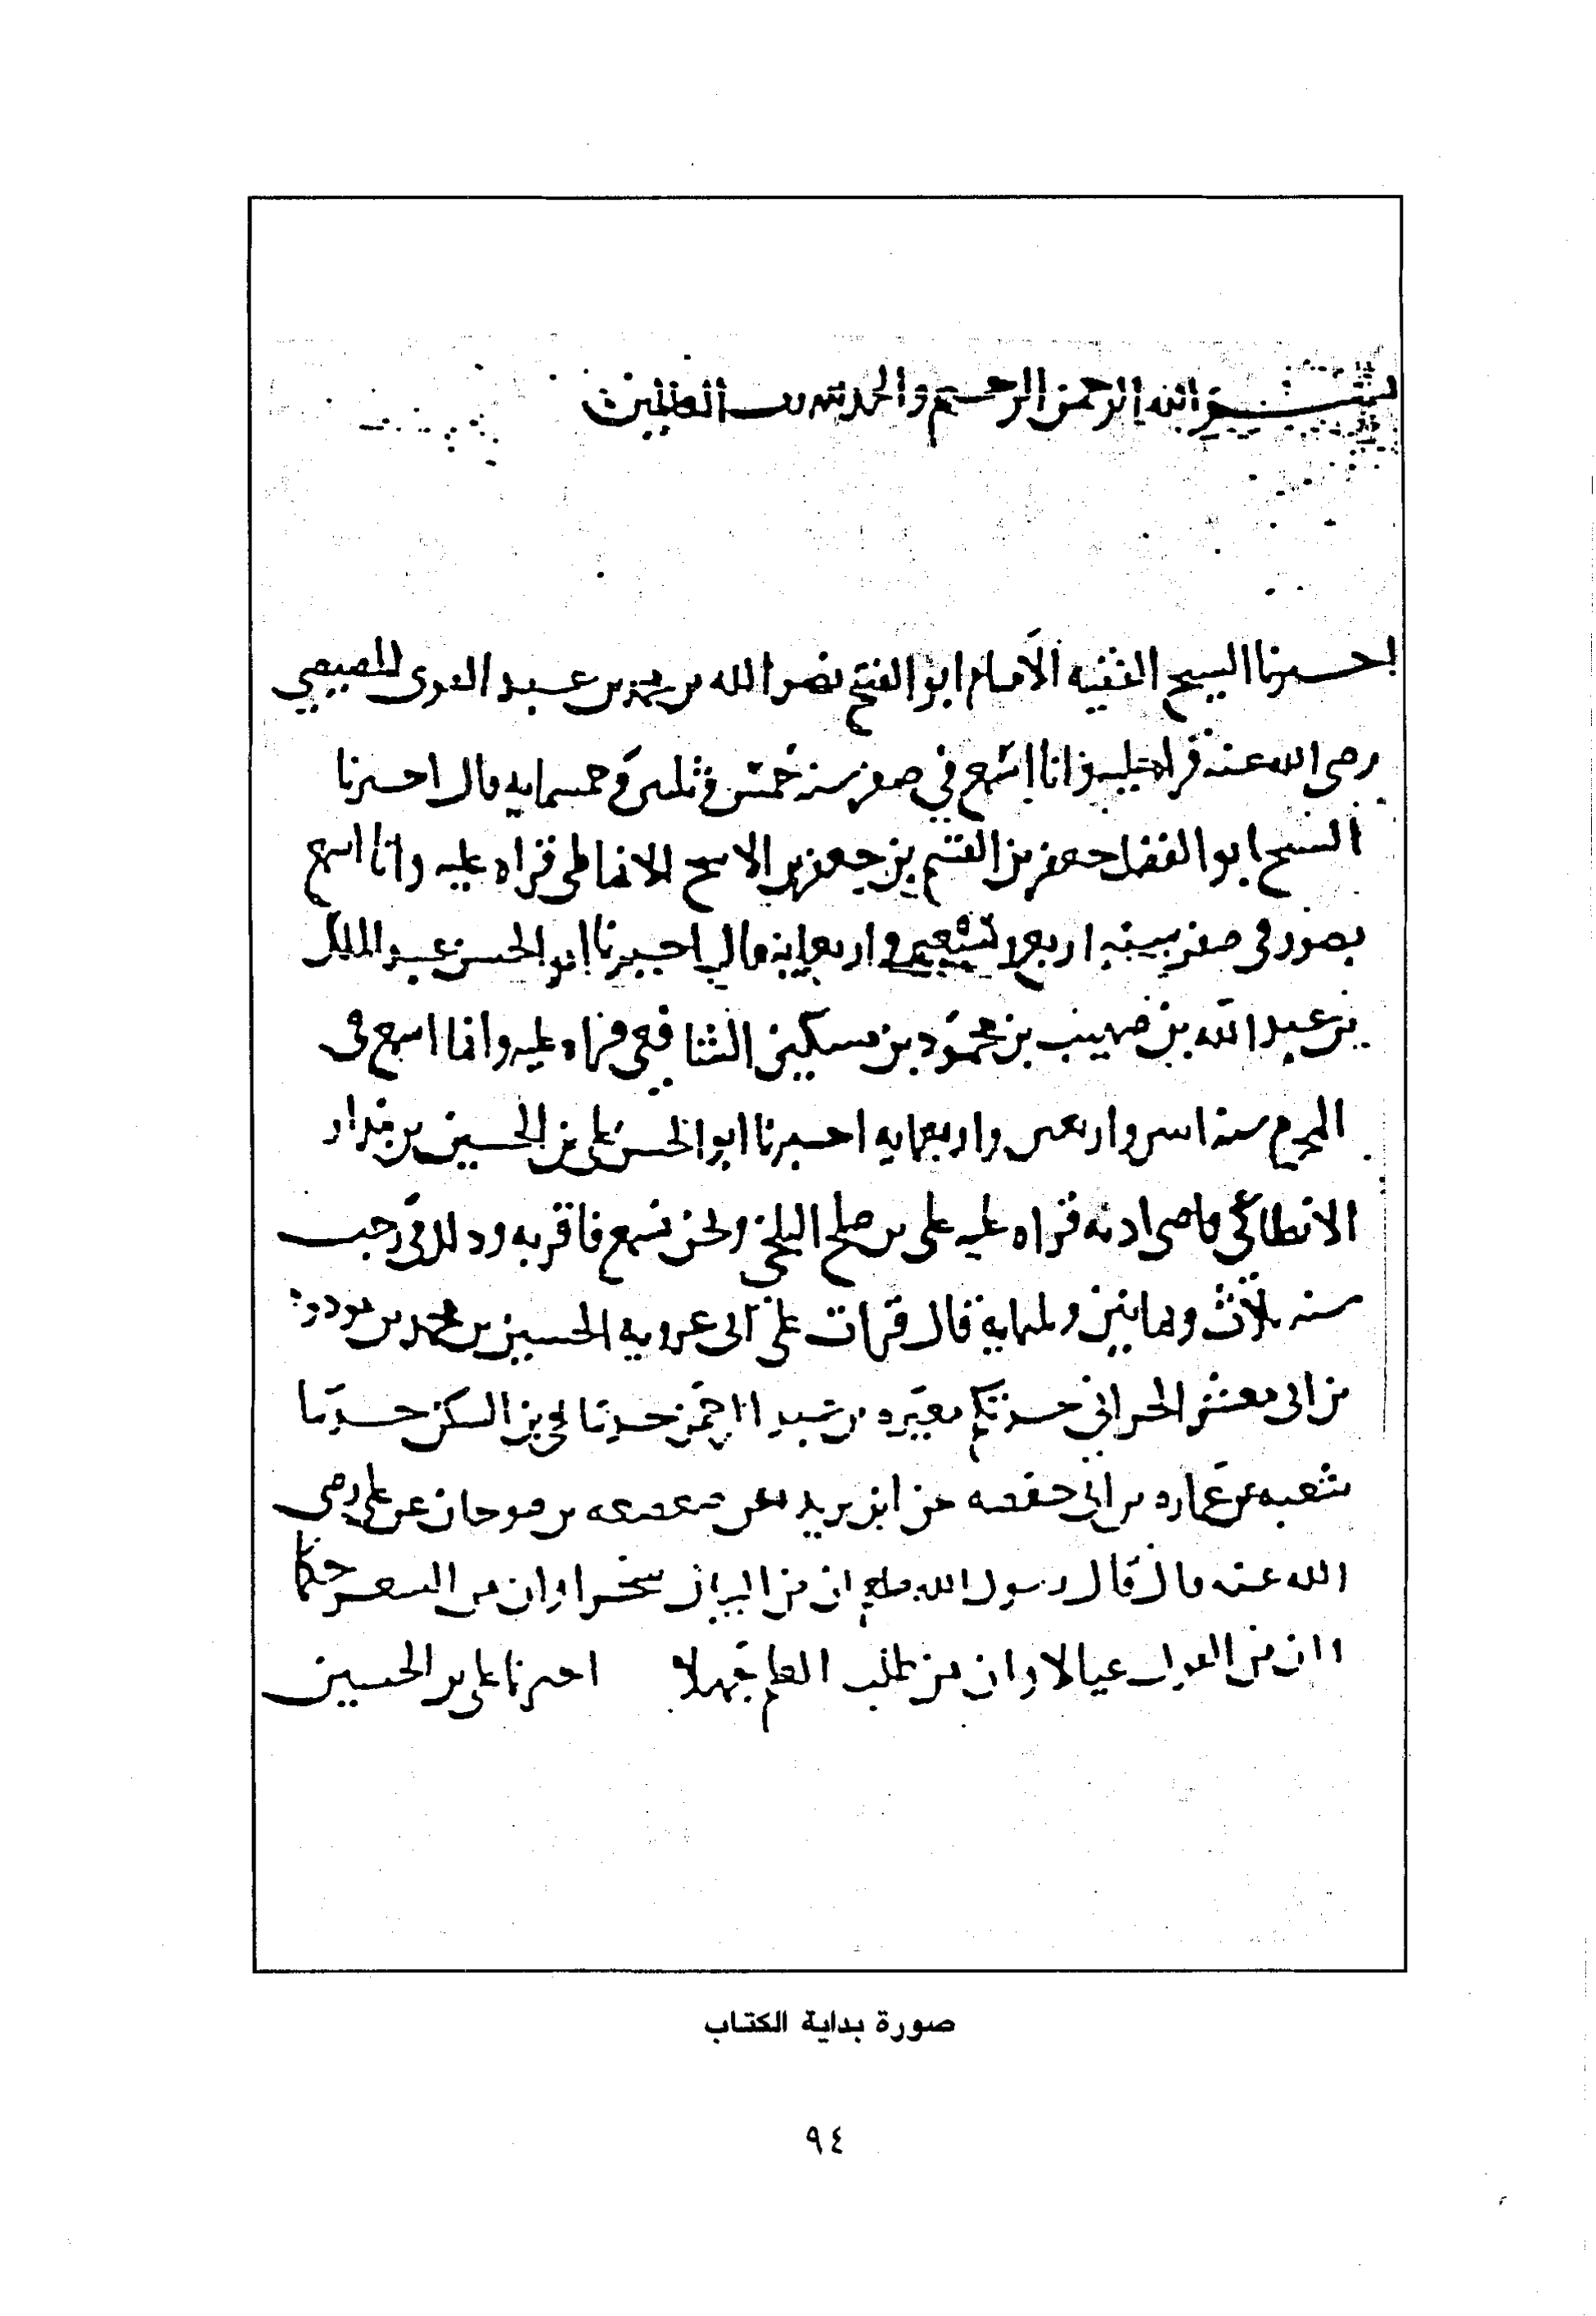 بسم الله الرحمن الرحيم والحمد لله رب العلمين
اخبرنا الشيخ الفقيه الامام ابو الفتح نصر الله بن محمد بن عبد القوى المصيصي
رضى الله عنه قراه عليه وانا اسمع في صفر سنة خمس وثلثين وخمسمايه قال اخبرنا
الشيخ ابو الفضل جعفر بن القسم بن جعفر بن الانماطى قراه عليه وانا اسمع
بصور في صفر سنه اربع وتسعين واربعمايه قال اخبرنا ابو الحسن عبد الملك
بن عبد الله بن محمود بن مسكين الشافعي قراه عليه وانا اسمع في
المحرم سنه اثنين واربعين واربعمايه اخبرنا ابو الحسن علي بن الحسين بن بندار
الانطاكي قاضى ادنه قراه عليه على بن صلح البلخي ونحن نسمع فاقر به وذلك في رجب
سنه ثلاث وثمانين وثلثمايه قال قرات على ابى عروبه الحسين بن محمد بن مودود
بن ابى معشر الحراني حدثكم مغيره بن عبد الرحمن حدثنا يحيى بن السكن حدثنا
شعبه عن عماره بن ابى حفصه عن ابن بريده عن صعصعه بن صوحان عن علي رضى
الله عنه قال قال رسول الله صلعم ان من البيان سحرا وان من الشعر حكما
وان من القول عيالا وان من طلب العلم جهلا اخبرنا علي بن الحسين
صورة بداية الكتاب
٩٤